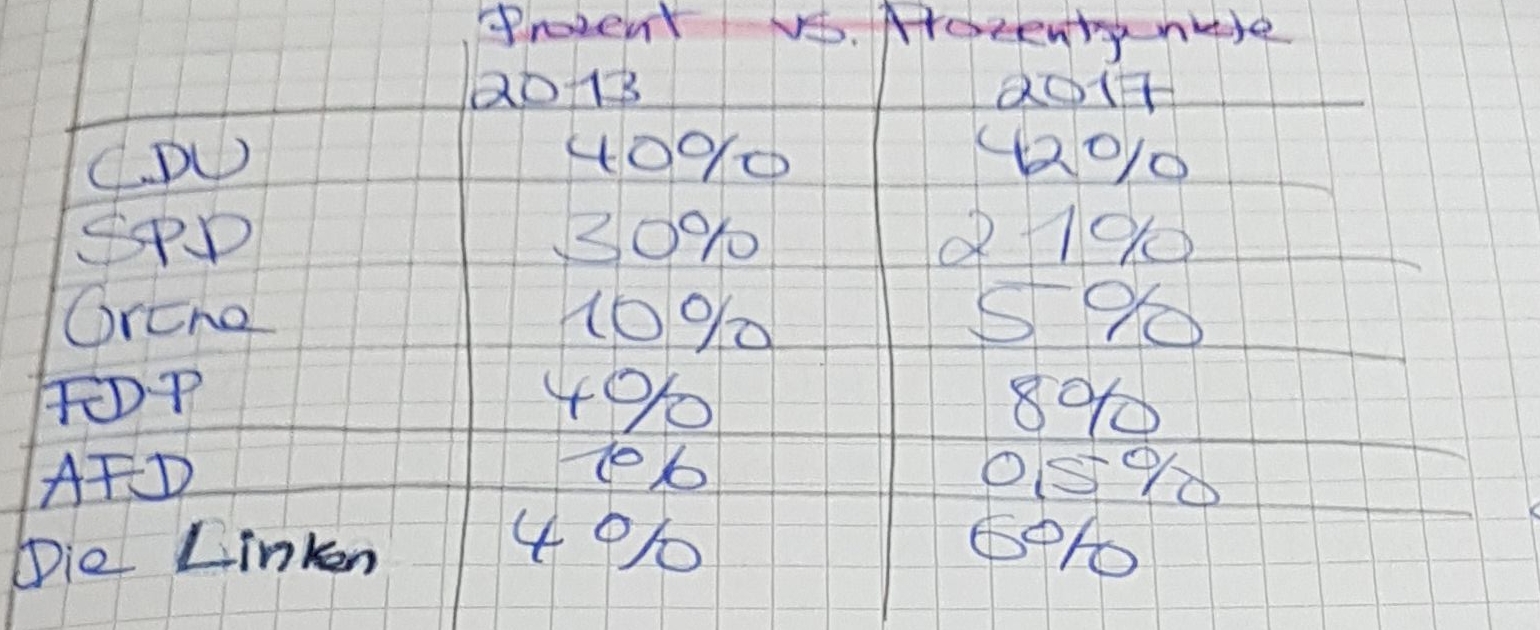 Prozent vs. Prozentpunkte
2013 2017
CDU 40% 42%
SPD 30% 21%
Grüne 10% 5%
FDP 4% 8%
AFD 1% 0,5%
Die Linken 4% 6%